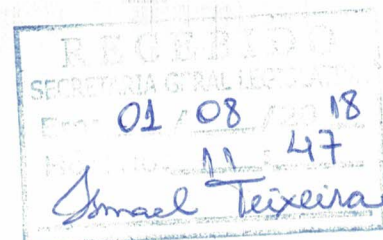 RECEBIDO
SECRETARIA GERAL LEGISLATIVA
Em: 01 / 08 / 20 18
11 : 47
Ismael Teixeira